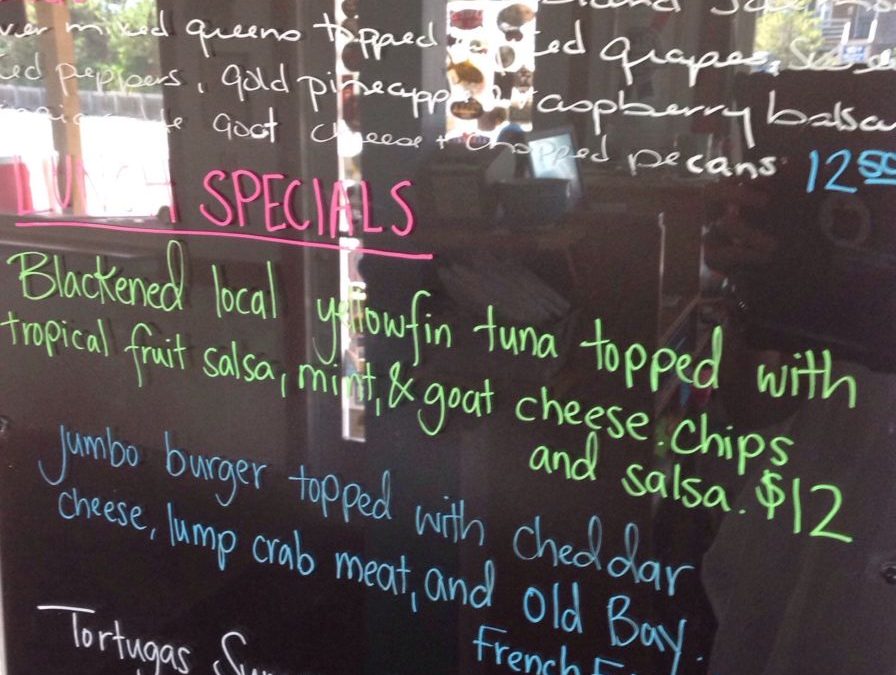 mixed greens topped grapes,
peppers, gold pineapple raspberry
goat cheese + chopped pecans 12
LUNCH SPECIALS
Blackened local yellowfin tuna topped with
tropical fruit salsa, mint, & goat cheese. chips
and salsa. $12
jumbo burger topped with cheddar
cheese, lump crab meat, and Old Bay.
French
Tortugas